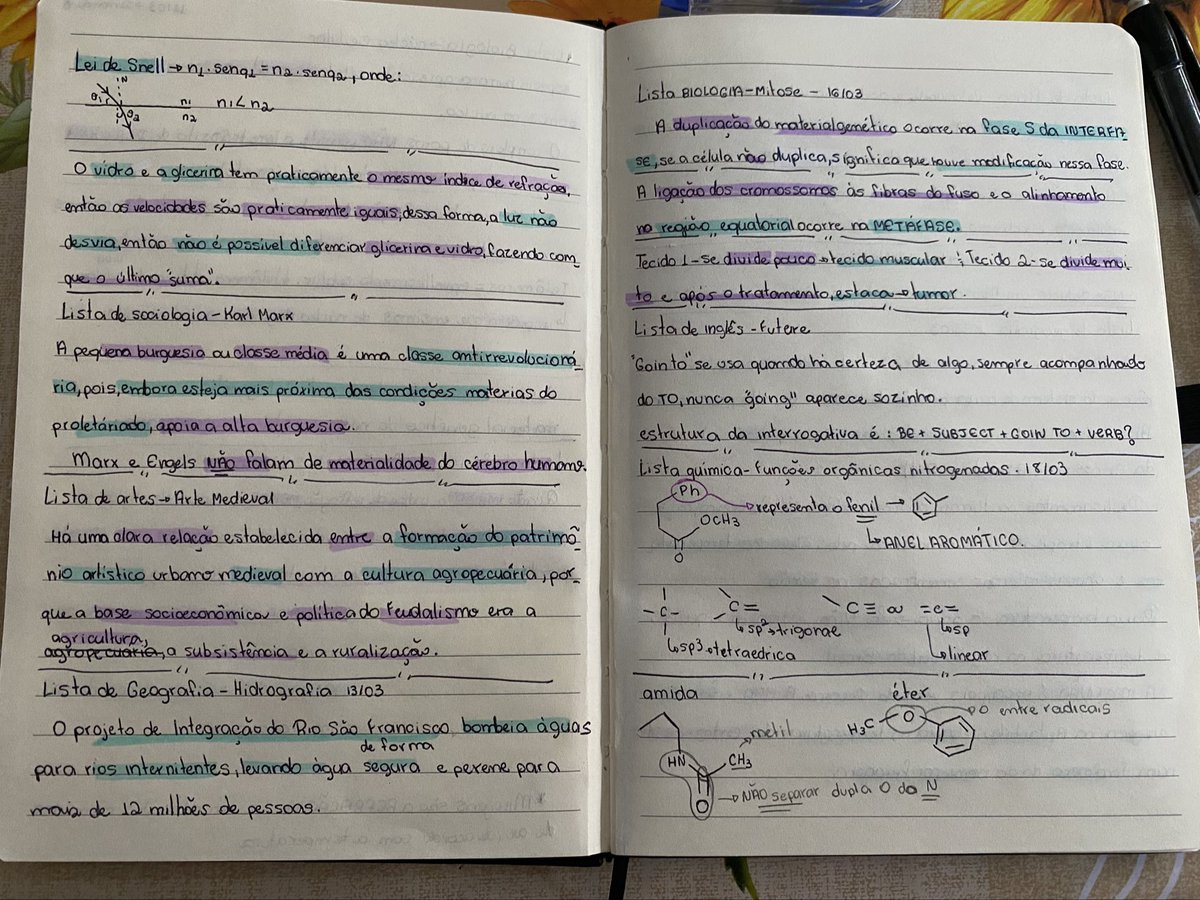 Lei de Snell → n1.senq1 = n2.senq2, onde:
N
θ1 n1 n1 < n2
θ2 n2
O vidro e a glicerina tem praticamente o mesmo índice de refração,
então as velocidades são praticamente iguais, dessa forma, a luz não
desvia, então não é possível diferenciar glicerina e vidro, fazendo com
que o último "suma".
Lista de sociologia - Karl Marx
A pequena burguesia ou classe média é uma classe antirrevolucioná-
ria, pois, embora esteja mais próxima das condições materias do
proletáriado, apoia a alta burguesia.
Marx e Engels NÃO falam de materialidade do cérebro humano.
Lista de artes → Arte Medieval
Há uma clara relação estabelecida entre a formação do patrimô-
nio artístico urbano medieval com a cultura agropecuária, por-
que a base socioeconômica e política do Feudalismo era a
agricultura,
agropecuária, a subsistência e a ruralização.
Lista de Geografia - Hidrografia 13/03
O projeto de Integração do Rio São Francisco bombeia águas
de forma
para rios internitentes, levando água segura e perene para
mais de 12 milhões de pessoas.
Lista BIOLOGIA - Mitose - 16/03
A duplicação do material genético ocorre na fase S da INTERFA
SE, se a célula não duplica, significa que houve modificação nessa fase.
A ligação dos cromossomos às fibras do fuso e o alinhamento
na região equatorial ocorre na METÁFASE.
Tecido 1 - se divide pouco → tecido muscular ; Tecido 2 - se divide mui
to e após o tratamento, estaca → tumor.
Lista de inglês - Future
"Goin to" se usa quando há certeza de algo, sempre acompanhado
do TO, nunca "going" aparece sozinho.
estrutura da interrogativa é : BE + SUBJECT + GOIN TO + VERB?
Lista química - Funções orgânicas nitrogenadas. 18/03
Ph → representa o fenil →
OCH3 ↳ ANEL AROMÁTICO.
O
-C- C= C≡ ou =C=
↳ sp² → trigonae ↳ sp
↳ sp3 → tetraedrica ↳ linear
amida éter
→ O entre radicais
H3C O
→ metil
HN CH3
O → NÃO separar dupla O do N